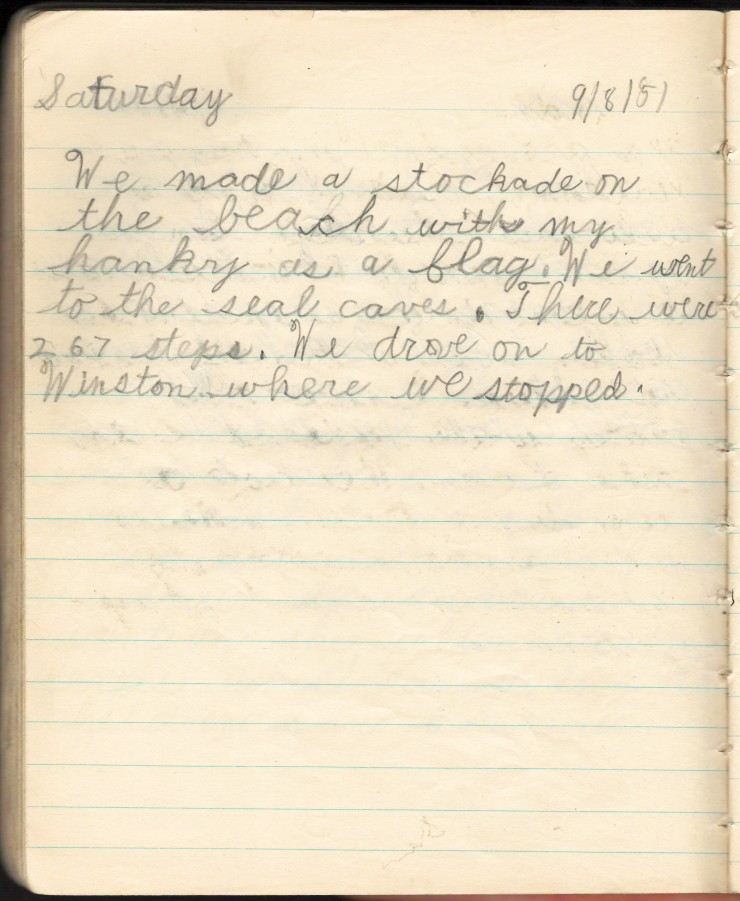 Saturday 9/8/51
We made a stockade on
the beach with my
hankry as a flag. We went
to the seal caves. There were
267 steps. We drove on to
Winston where we stopped.